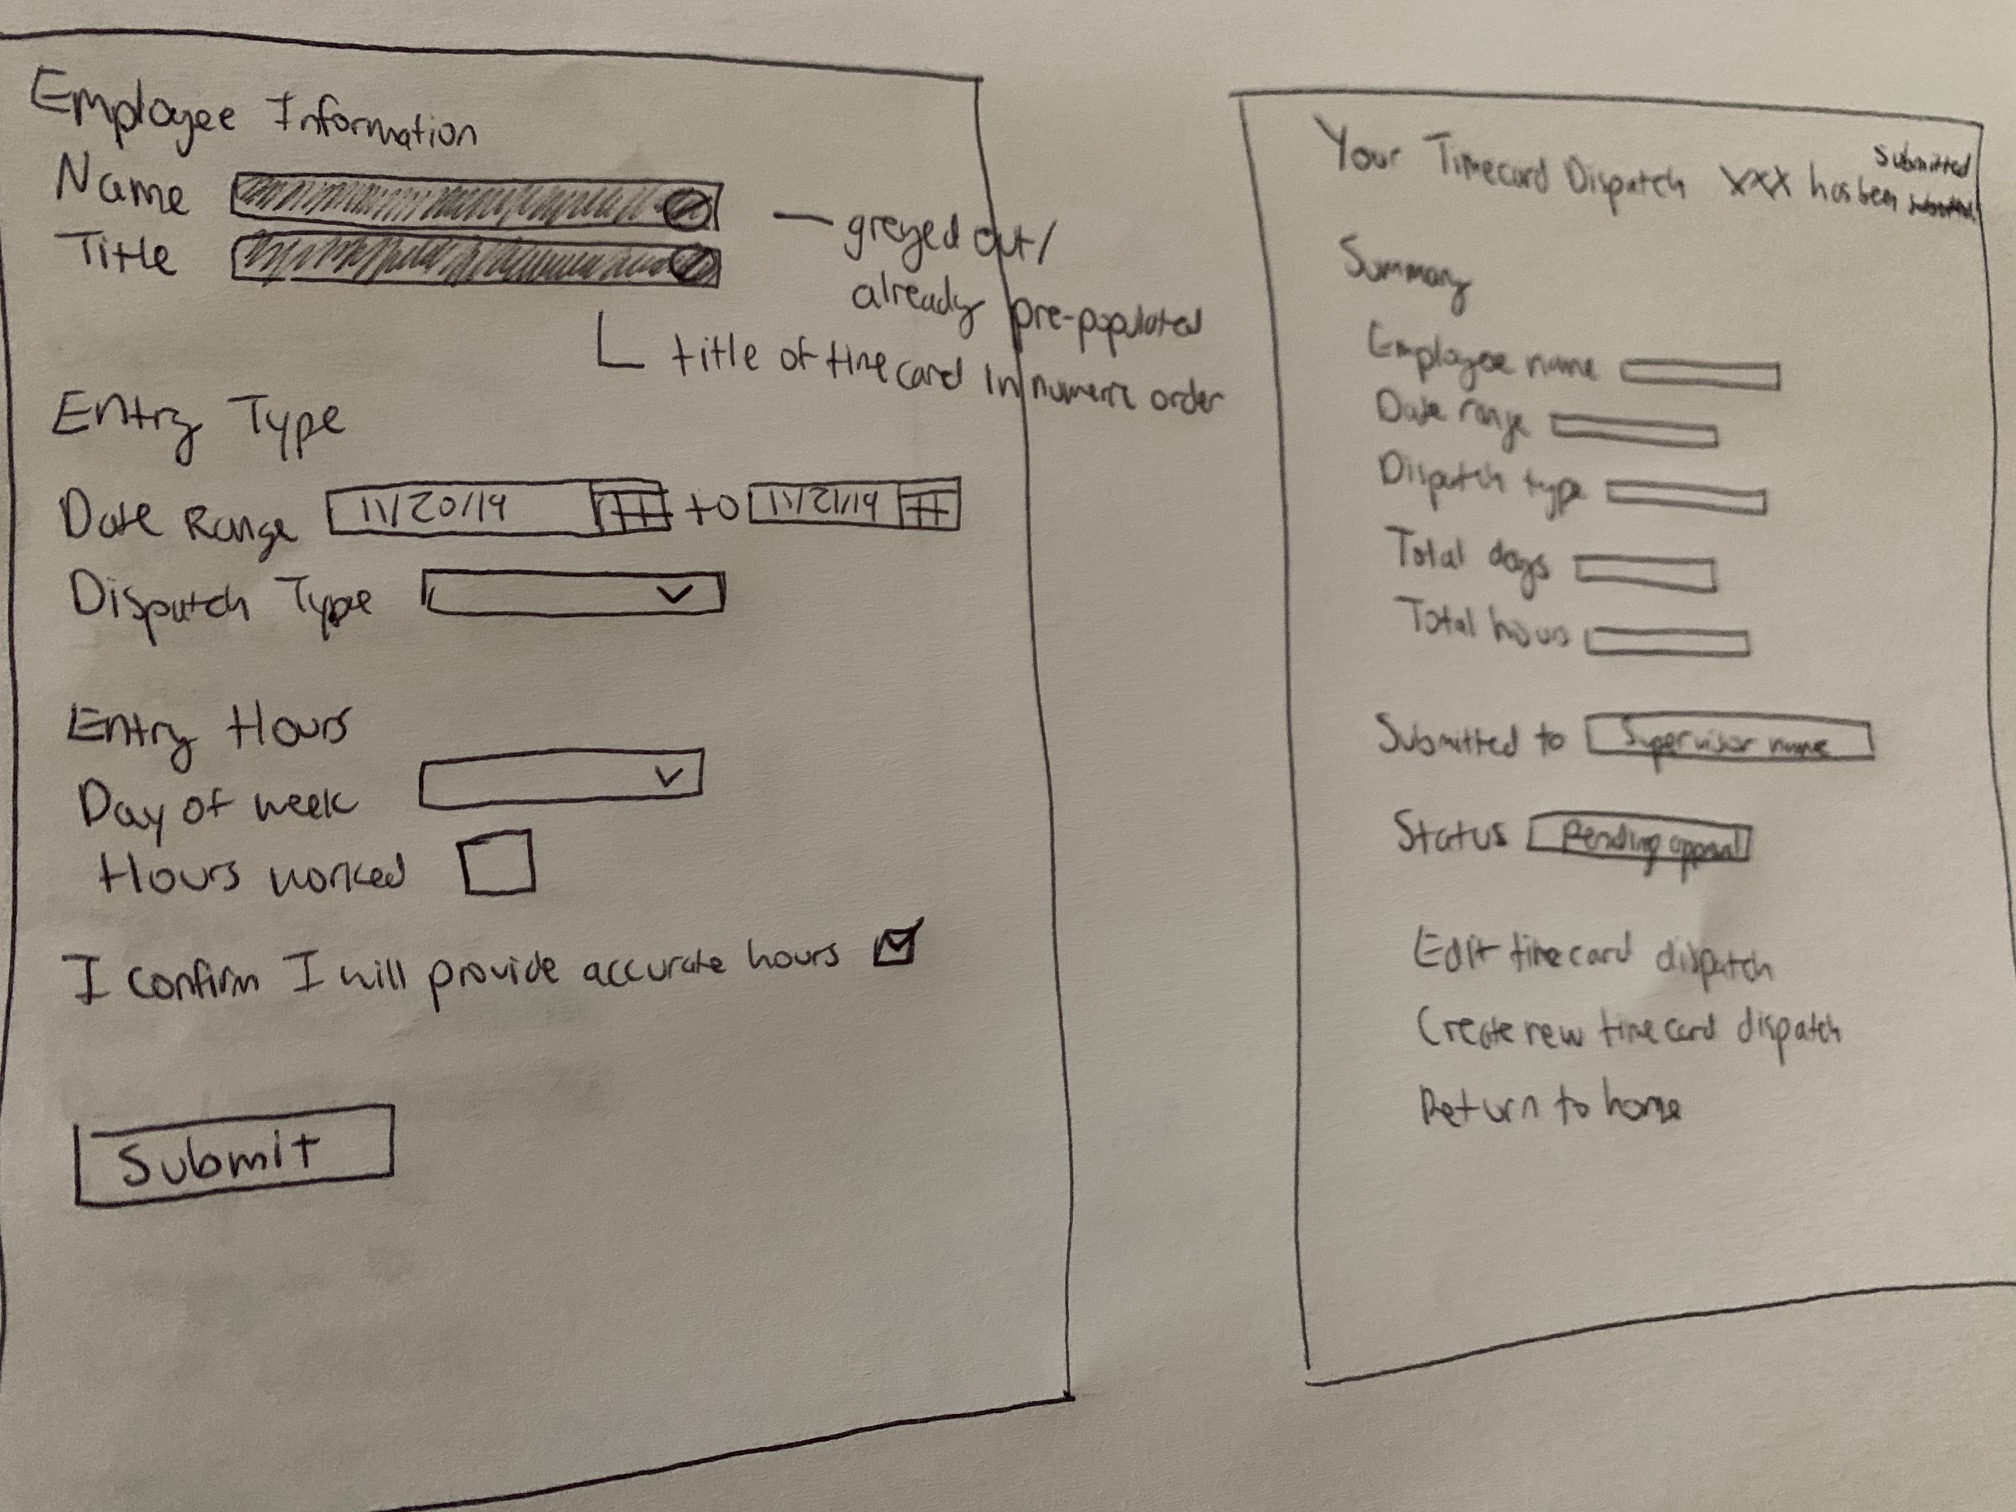 Employee Information
Name
Title
— greyed out/
already pre-populated
title of timecard in numeric order
Entry Type
Date Range 11/20/19 to 11/21/19
Dispatch Type
Entry Hours
Day of week
Hours worked
I confirm I will provide accurate hours
Submit
Your Timecard Dispatch XXX has been submitted
Summary
Employee name
Date range
Dispatch type
Total days
Total hours
Submitted to Supervisor name
Status Pending approval
Edit timecard dispatch
Create new timecard dispatch
Return to home